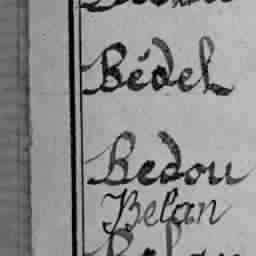 Bédel
Bedou
Belan